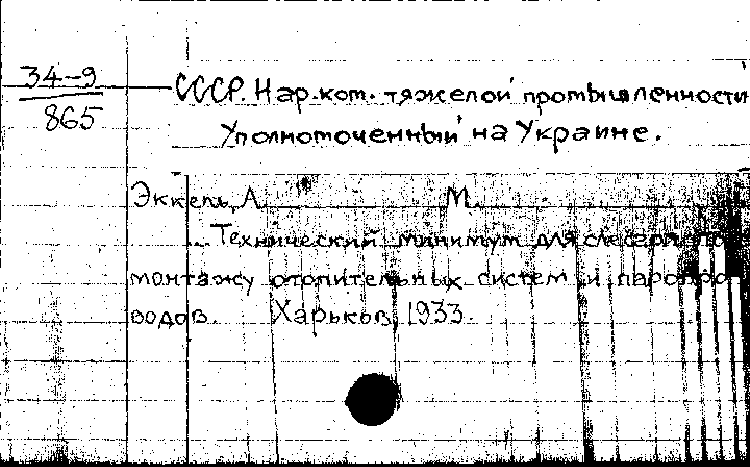 34-9
865
СССР. Нар. ком. тяжелой промышленности
Уполномоченный на Украине.
Эккель, А. М.
Технический минимум для слесаря по
монтажу отопительных систем и паропро-
водов. Харьков, 1933.